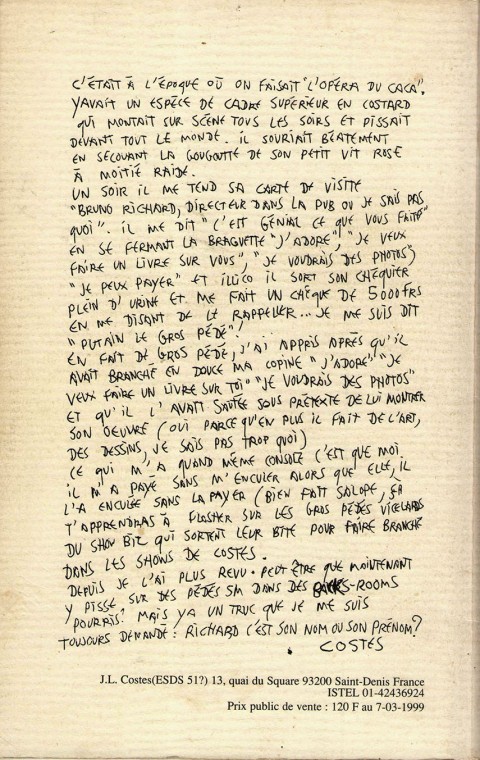 C'ÉTAIT À L'ÉPOQUE OÙ ON FAISAIT "L'OPÉRA DU CACA".
YAVAIT UN ESPÈCE DE CADRE SUPÉRIEUR EN COSTARD
QUI MONTAIT SUR SCÈNE TOUS LES SOIRS ET PISSAIT
DEVANT TOUT LE MONDE. IL SOURIAIT BÉATEMENT
EN SECOUANT LA GOUGOUTTE DE SON PETIT VIT ROSE
À MOITIÉ RAIDE.
UN SOIR IL ME TEND SA CARTE DE VISITE
"BRUNO RICHARD, DIRECTEUR DANS LA PUB OU JE SAIS PAS
QUOI". IL ME DIT "C'EST GÉNIAL CE QUE VOUS FAITES"
EN SE FERMANT LA BRAGUETTE "J'ADORE", "JE VEUX
FAIRE UN LIVRE SUR VOUS", "JE VOUDRAIS DES PHOTOS",
"JE PEUX PAYER" ET ILLICO IL SORT SON CHÉQUIER
PLEIN D'URINE ET ME FAIT UN CHÈQUE DE 5000 FRS
EN ME DISANT DE LE RAPPELER... JE ME SUIS DIT
"PUTAIN LE GROS PÉDÉ"!
EN FAIT DE GROS PÉDÉ, J'AI APPRIS APRÈS QU'IL
AVAIT BRANCHÉ EN DOUCE MA COPINE "J'ADORE" "JE
VEUX FAIRE UN LIVRE SUR TOI" "JE VOUDRAIS DES PHOTOS"
ET QU'IL L'AVAIT SAUTÉE SOUS PRÉTEXTE DE LUI MONTRER
SON OEUVRE (OUI PARCE QU'EN PLUS IL FAIT DE L'ART,
DES DESSINS, JE SAIS PAS TROP QUOI)
CE QUI M'A QUAND MÊME CONSOLÉ C'EST QUE MOI
IL M'A PAYÉ SANS M'ENCULER ALORS QUE ELLE, IL
L'A ENCULÉE SANS LA PAYER (BIEN FAIT SALOPE, ÇA
T'APPRENDRAS À FLASHER SUR LES GROS PÉDÉS VICELARDS
DU SHOW BIZ QUI SORTENT LEUR BITE POUR FAIRE BRANCHÉ
DANS LES SHOWS DE COSTES.
DEPUIS JE L'AI PLUS REVU. PEUT ÊTRE QUE MAINTENANT
Y PISSE SUR DES PÉDÉS SM DANS DES BACKS-ROOMS
POURRIS? MAIS YA UN TRUC QUE JE ME SUIS
TOUJOURS DEMANDÉ : RICHARD C'EST SON NOM OU SON PRÉNOM?
COSTES
J.L. Costes(ESDS 51?) 13, quai du Square 93200 Saint-Denis France
ISTEL 01-42436924
Prix public de vente : 120 F au 7-03-1999